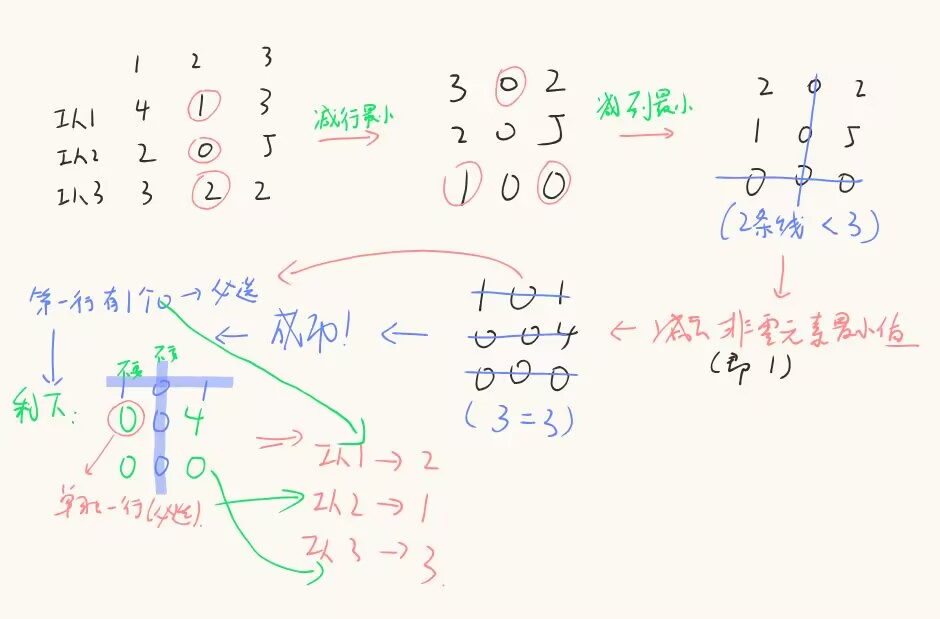 1 2 3
工人1 4 1 3
工人2 2 0 5
工人3 3 2 2
减行最小
3 0 2
2 0 5
1 0 0
减列最小
2 0 2
1 0 5
0 0 0
(2条线 < 3)
减去非零元素最小值
(即 1)
1 0 1
0 0 4
0 0 0
(3=3)
成功!
第一行有1个0→必选
剩下:
1 0 1
0 0 4
0 0 0
单独一行(必选)
工人1 → 2
工人2 → 1
工人3 → 3.